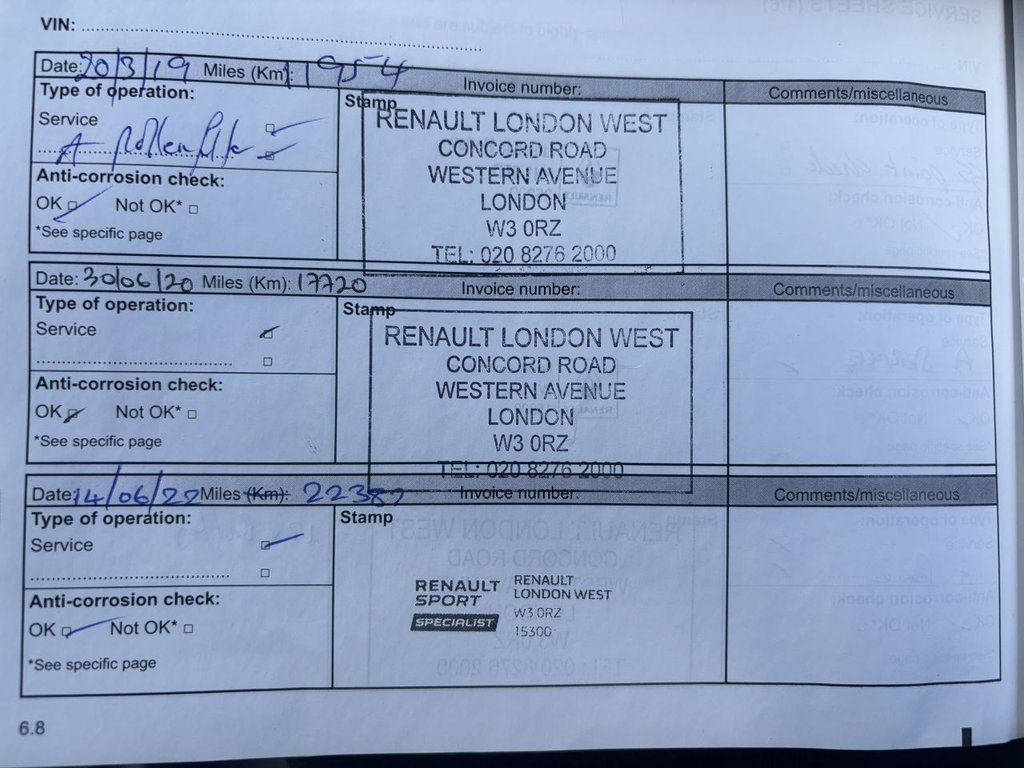 VIN:
Date: 20/3/19 Miles (Km): 11954
Invoice number:
Comments/miscellaneous
Type of operation:
Service
A Pollen
Anti-corrosion check:
OK Not OK*
*See specific page
Stamp
RENAULT LONDON WEST
CONCORD ROAD
WESTERN AVENUE
LONDON
W3 0RZ
TEL: 020 8276 2000
Date: 30/06/20 Miles (Km): 17720
Invoice number:
Comments/miscellaneous
Type of operation:
Service
Anti-corrosion check:
OK Not OK*
*See specific page
Stamp
RENAULT LONDON WEST
CONCORD ROAD
WESTERN AVENUE
LONDON
W3 0RZ
TEL: 020 8276 2000
Date: 14/06/22 Miles (Km): 22382
Invoice number:
Comments/miscellaneous
Type of operation:
Service
Anti-corrosion check:
OK Not OK*
*See specific page
Stamp
RENAULT SPORT
SPECIALIST
RENAULT
LONDON WEST
W3 0RZ
15300
6.8